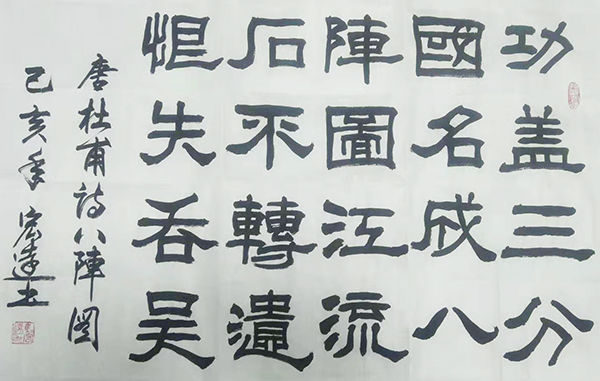 功盖三分
國名成八
陣圖江流
石不轉遺
恨失吞吴
唐杜甫诗八陣图
己亥年宏達书